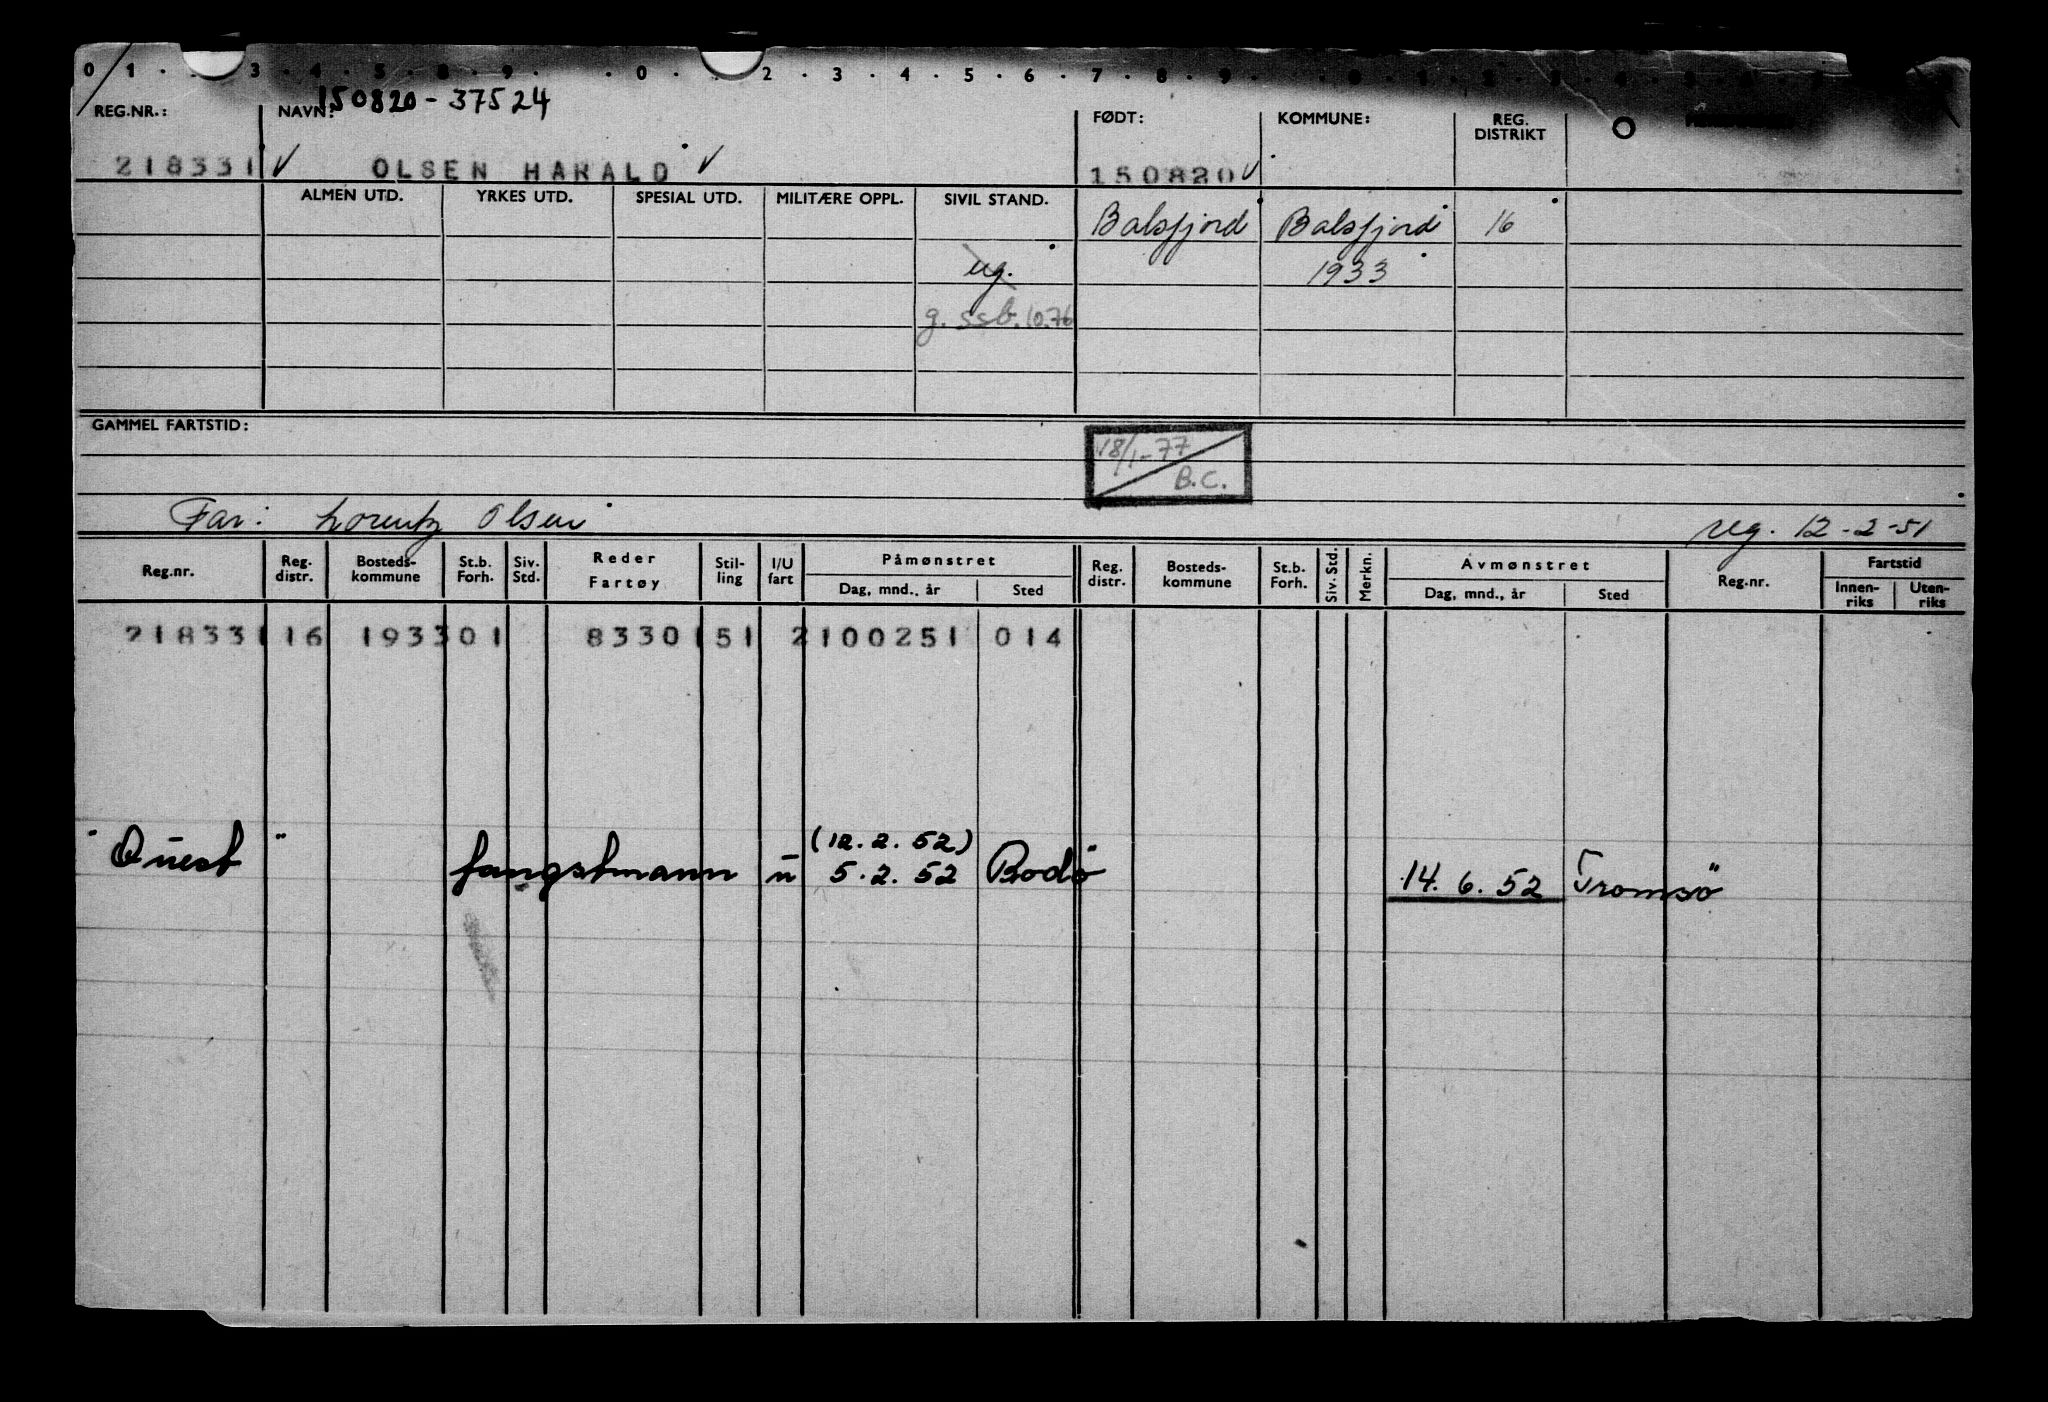 150820-37524
REG.NR.: NAVN: FØDT: KOMMUNE: REG. DISTRIKT
218331 ✓ OLSEN HARALD ✓ 150820 ✓
ALMEN UTD. YRKES UTD. SPESIAL UTD. MILITÆRE OPPL. SIVIL STAND. Balsfjord Balsfjord 16
ug. 1933
g. ssb. 10.76
GAMMEL FARTSTID:
18/1-77
B.C.
Far: Lorentz Olsen reg. 12-2-51
Reg.nr. Reg. distr. Bosteds-kommune St.b. Forh. Siv. Std. Reder Fartøy Stil-ling I/U fart Påmønstret Dag, mnd., år Sted Reg. distr. Bosteds-kommune St.b. Forh. Siv. Std. Merkn. Avmønstret Dag, mnd., år Sted Reg.nr. Fartstid Innen-riks Uten-riks
218331 16 1933 01 8330 151 2 100251 014
(12.2.52)
"Quest" fangstmann u 5.2.52 Bodö 14.6.52 Tromsö